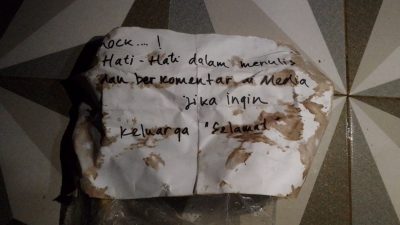 ock....!
Hati-Hati dalam menulis
dan berkomentar di Media
jika ingin
keluarga "Selamat"